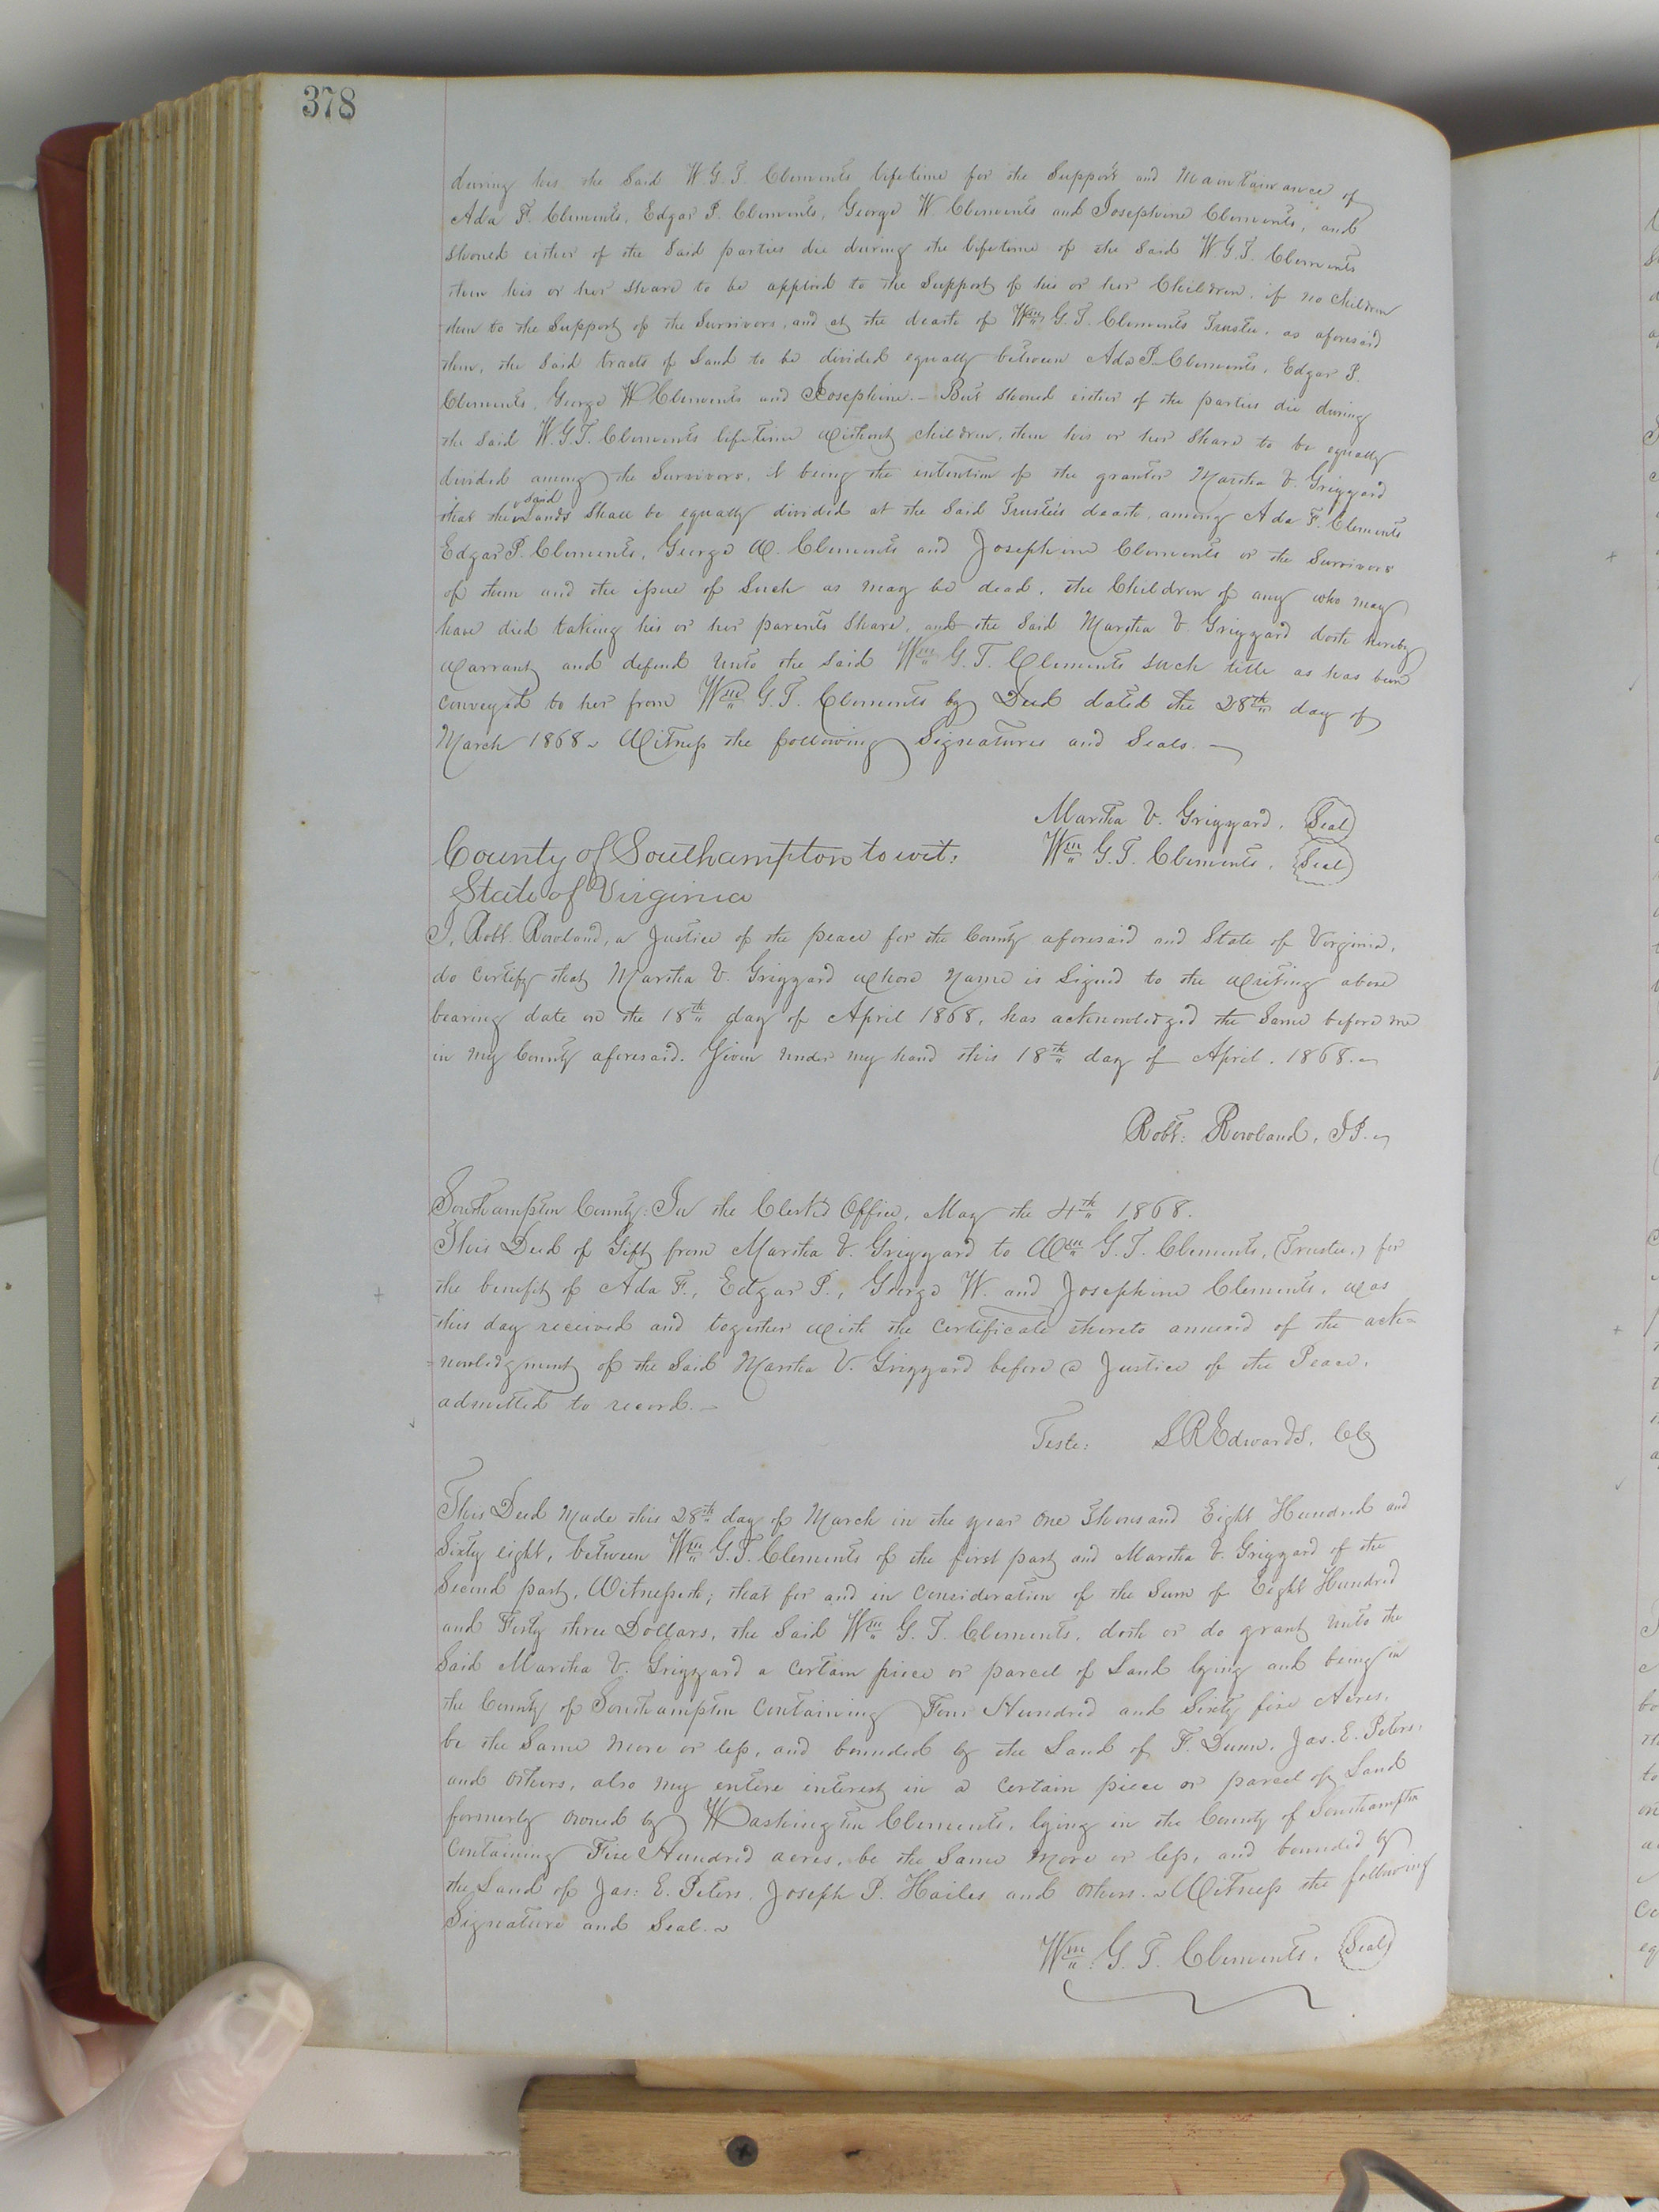 378
during his the Said W G. T. Clements lifetime for the Support and Maintainance of
Ada F. Clements, Edgar P. Clements, George W. Clements and Josephine Clements, and
shoued either of the Said parties die during the lifetime of the Said W. G. T. Clements
then his or her share to be applied to the Support of his or her Children, if no children
then to the Support of the Survivors, and at the death of Wm G. T. Clements Trustee, as aforesaid
then, the Said tracts of Land to be divided equally between Ada P. Clements, Edgar P.
Clements, George W Clements and Josephine. - But shoued either of the parties die during
the Said W. G. T. Clements lifetime without children, then his or her Share to be equally
divided among the Survivors, it being the intention of the grantor Martha V. Griggard
that the said Lands Shall be equally divided at the Said Trustees death, among Ada F. Clements
Edgar P. Clements, George W. Clements and Josephine Clements or the Survivors
of them and the issue of Such as may be dead, the Children of any who may
have died taking his or her parents Share, and the Said Martha V. Griggard doth hereby
Warrant and defend Unto the Said Wm G. T. Clements such title as has been
Conveyed to her from Wm G. T. Clements by Deed dated the 28th day of
March 1868. Witness the following Signatures and Seals. -
Martha V. Griggard. Seal
Wm G. T. Clements. Seal
County of Southampton to wit:
State of Virginia
I, Robt. Rowland, a Justice of the peace for the County aforesaid and State of Virginia,
do Certify that Martha V. Griggard whose Name is Signed to the Writing above
bearing date on the 18th day of April 1868, has acknowledged the Same before me
in my County aforesaid. Given Under my hand this 18th day of April. 1868.
Robt: Rowland, J P.
Southampton County: In the Clerk's Office, May the 4th 1868.
This Deed of Gift from Martha V. Griggard to Wm G. T. Clements, (Trustee,) for
the benefit of Ada F., Edgar P., George W. and Josephine Clements, was
this day received and together with the Certificate thereto annexed of the ack=
=nowledgment of the Said Martha V. Griggard before a Justice of the Peace,
admitted to record. -
Teste: L R Edwards, CC
This Deed Made this 28th day of March in the year One Thousand Eight Hundred and
Sixty eight, between Wm G. T. Clements of the first part and Martha V. Griggard of the
Second part, Witnesseth; that for and in Consideration of the Sum of Eight Hundred
and Forty three Dollars, the Said Wm G. T. Clements, doth or do grant Unto the
Said Martha V. Griggard a Certain piece or parcel of Land lying and being in
the County of Southampton Containing Four Hundred and Sixty five Acres,
be the Same More or less, and bounded by the Land of F. Dunn, Jas. E. Peters,
and Others, also my entire interest in a Certain piece or parcel of Land
formerly owned by Washington Clements, lying in the County of Southampton
Containing Five Hundred acres, be the Same More or less, and bounded by
the Land of Jas: E. Peters, Joseph P. Hailes, and Others. Witness the following
Signature and Seal.
Wm G. T. Clements. Seal